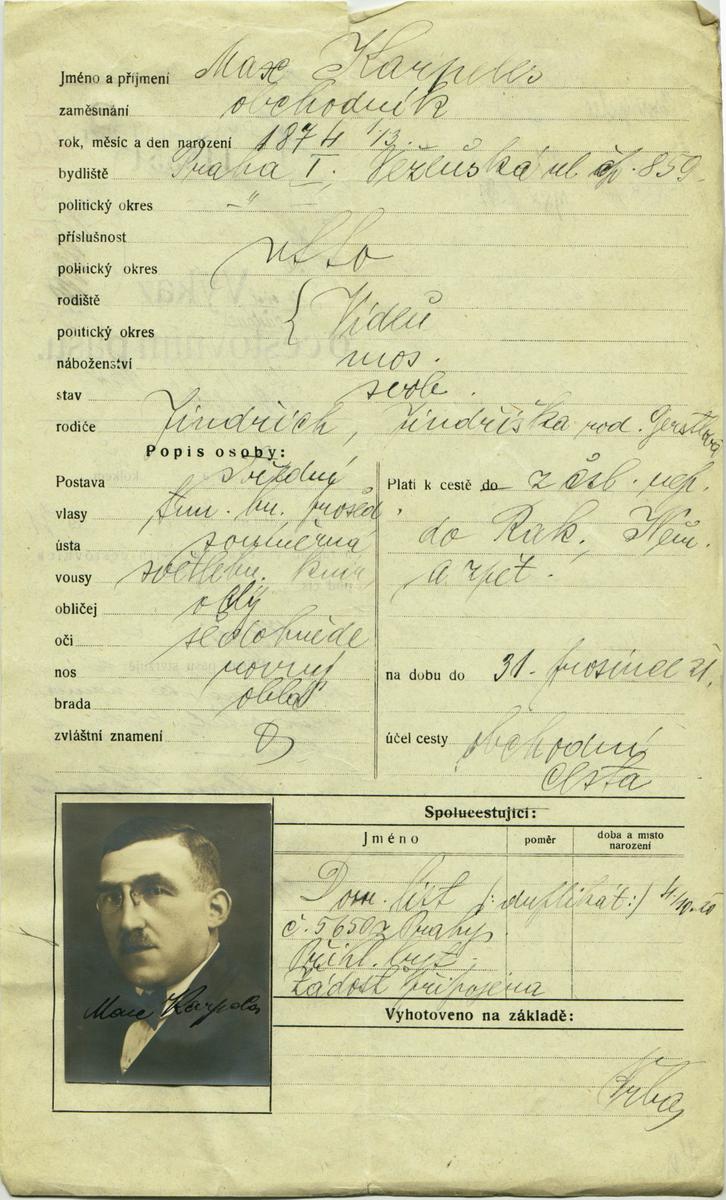 Jméno a příjmení Max Karpeles
zaměstnání obchodník
rok, měsíc a den narození 1874 1/3.
bydliště Praha I., Vězeňská ul. čp. 859.
politický okres „
příslušnost
politický okres
rodiště
politický okres Vídeň
náboženství mos.
stav svob.
rodiče Jindřich, Jindřiška rod.
Popis osoby:
Postava střední
vlasy tm. hn. prošed.
ústa souměrná
vousy světlehn. knír
obličej oblý
oči šedohnědé
nos rovný
brada oblá
zvláštní znamení
Platí k cestě do z čsb. rep.
do Rak., Něm.
a zpět.
na dobu do 31. prosince 21.
účel cesty obchodní
cesta
Spolucestující:
Jméno poměr doba a místo narození
Dom. list /: duplikát :/ 4/10.20
č. 5650 z Prahy.
Přihl. byt.
Žádost připojena
Vyhotoveno na základě:
Max Karpeles